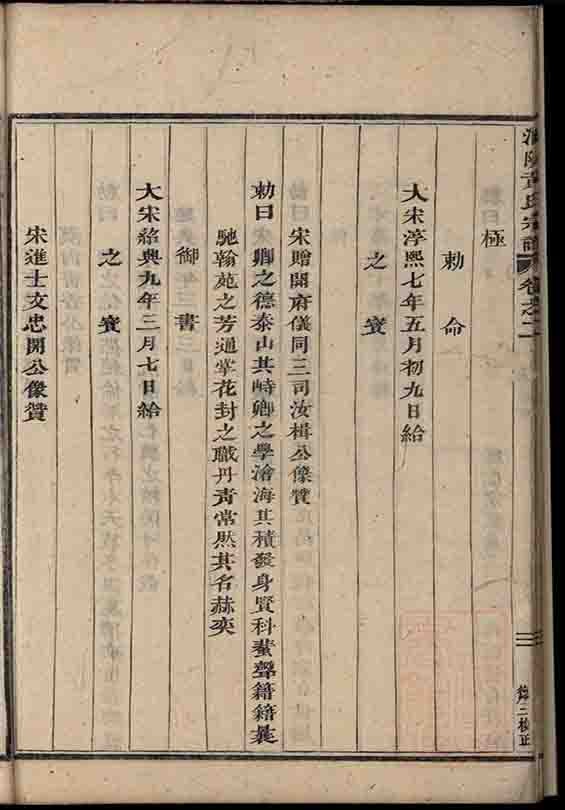 黃氏宗譜 卷之二
三
錄三校正
極
勅命
大宋淳熙七年五月初九日給
之寶
宋贈開府儀同三司汝楫公像贊
勅曰卿之德泰山其峙卿之學滄海其積發身賢科蜚聲籍籍
馳翰苑之芳通掌花封之職丹青常然其名赫奕
御書
大宋紹興九年三月七日給
之寶
宋進士文忠開公像贊